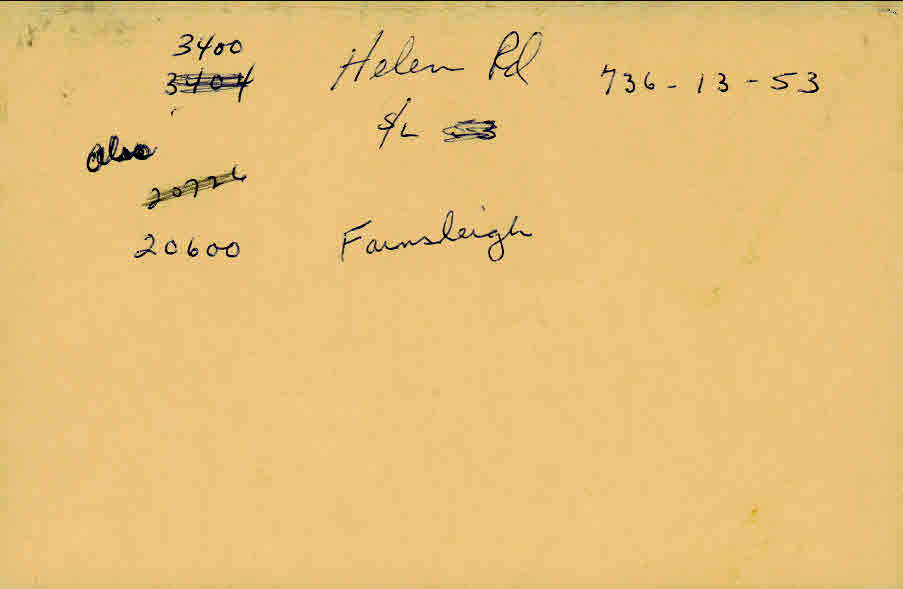 3400 Helen Rd 736-13-53
3404
S/L
also
20726
20600 Farnsleigh